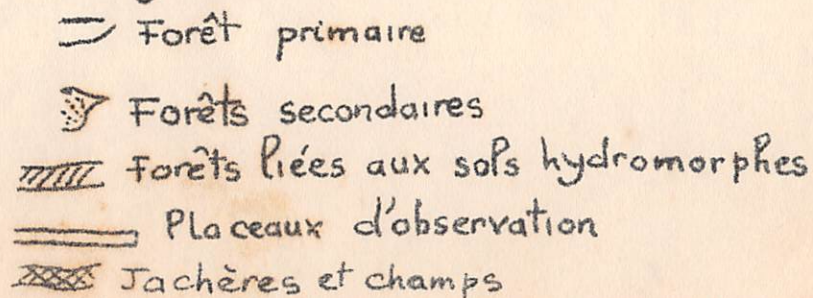 Forêt primaire
Forêts secondaires
Forêts liées aux sols hydromorphes
Placeaux d'observation
Jachères et champs